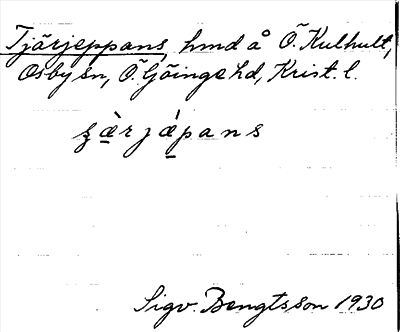 Tjärjeppans, hmd å Ö. Kulhult,
Osby sn, Ö. Göinge hd, Krist. l.
ʂæ̀rjæ̀pans
Sigv. Bengtsson 1930